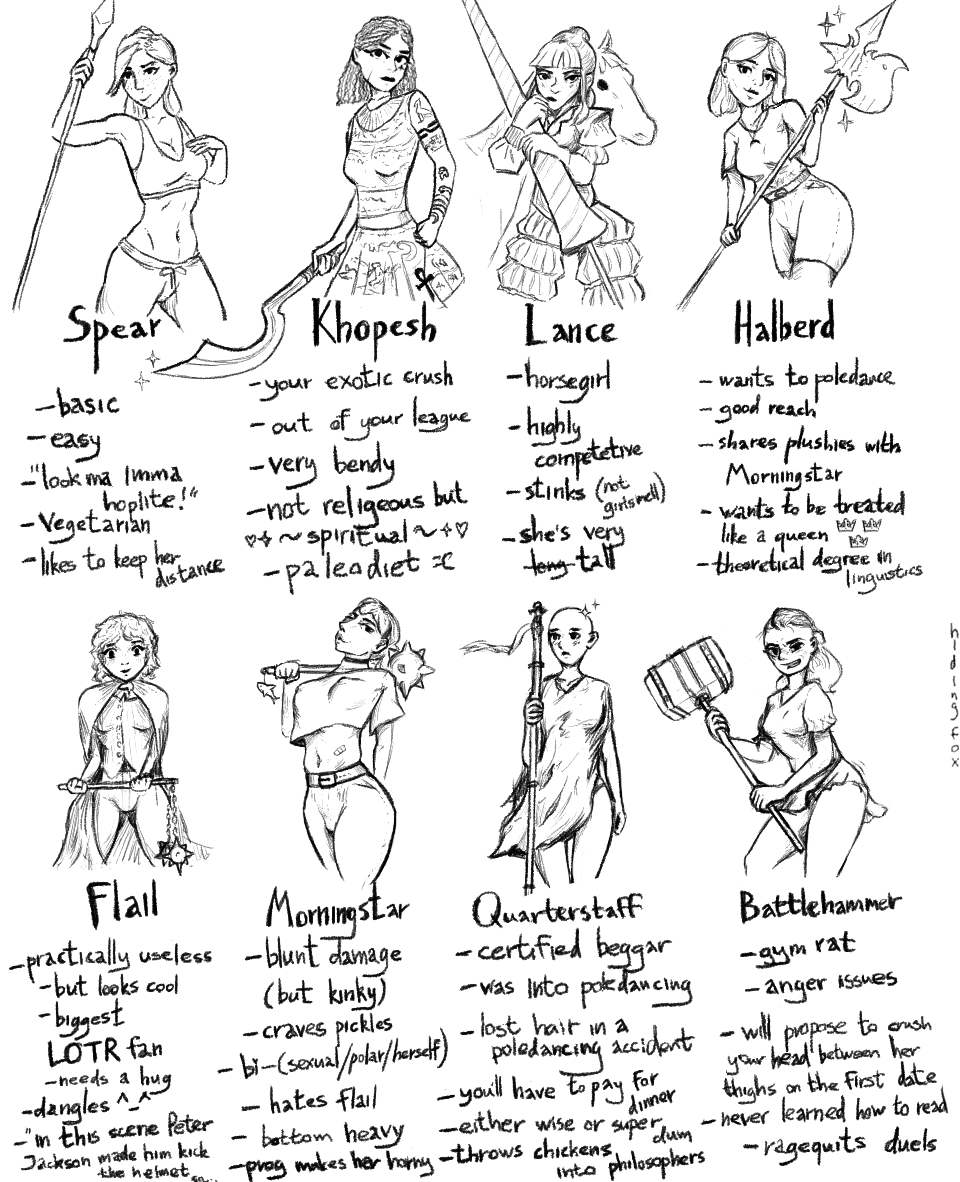 Spear
-basic
-easy
-"look ma Imma
hoplite!"
-Vegetarian
-likes to keep her
distance
Khopesh
-your exotic crush
-out of your league
-very bendy
-not religeous but
~spiritual~
-paleodiet :C
Lance
-horsegirl
-highly
competetive
-stinks (not
girlsmell)
-she's very
long tall
Halberd
-wants to poledance
-good reach
-shares plushies with
Morningstar
-wants to be treated
like a queen
-theoretical degree in
linguistics
hidingfox
Flail
-practically useless
-but looks cool
-biggest
LOTR fan
-needs a hug
-dangles ^_^
-"in this scene Peter
Jackson made him kick
the helmet so...
Morningstar
-blunt damage
(but kinky)
-craves pickles
-bi-(sexual/polar/herself)
-hates flail
-bottom heavy
-prog makes her horny
Quarterstaff
-certified beggar
-was into poledancing
-lost hair in a
poledancing accident
-youll have to pay for
dinner
-either wise or super
dum
-throws chickens
into philosophers
Battlehammer
-gym rat
-anger issues
-will propose to crush
your head between her
thighs on the first date
-never learned how to read
-ragequits duels